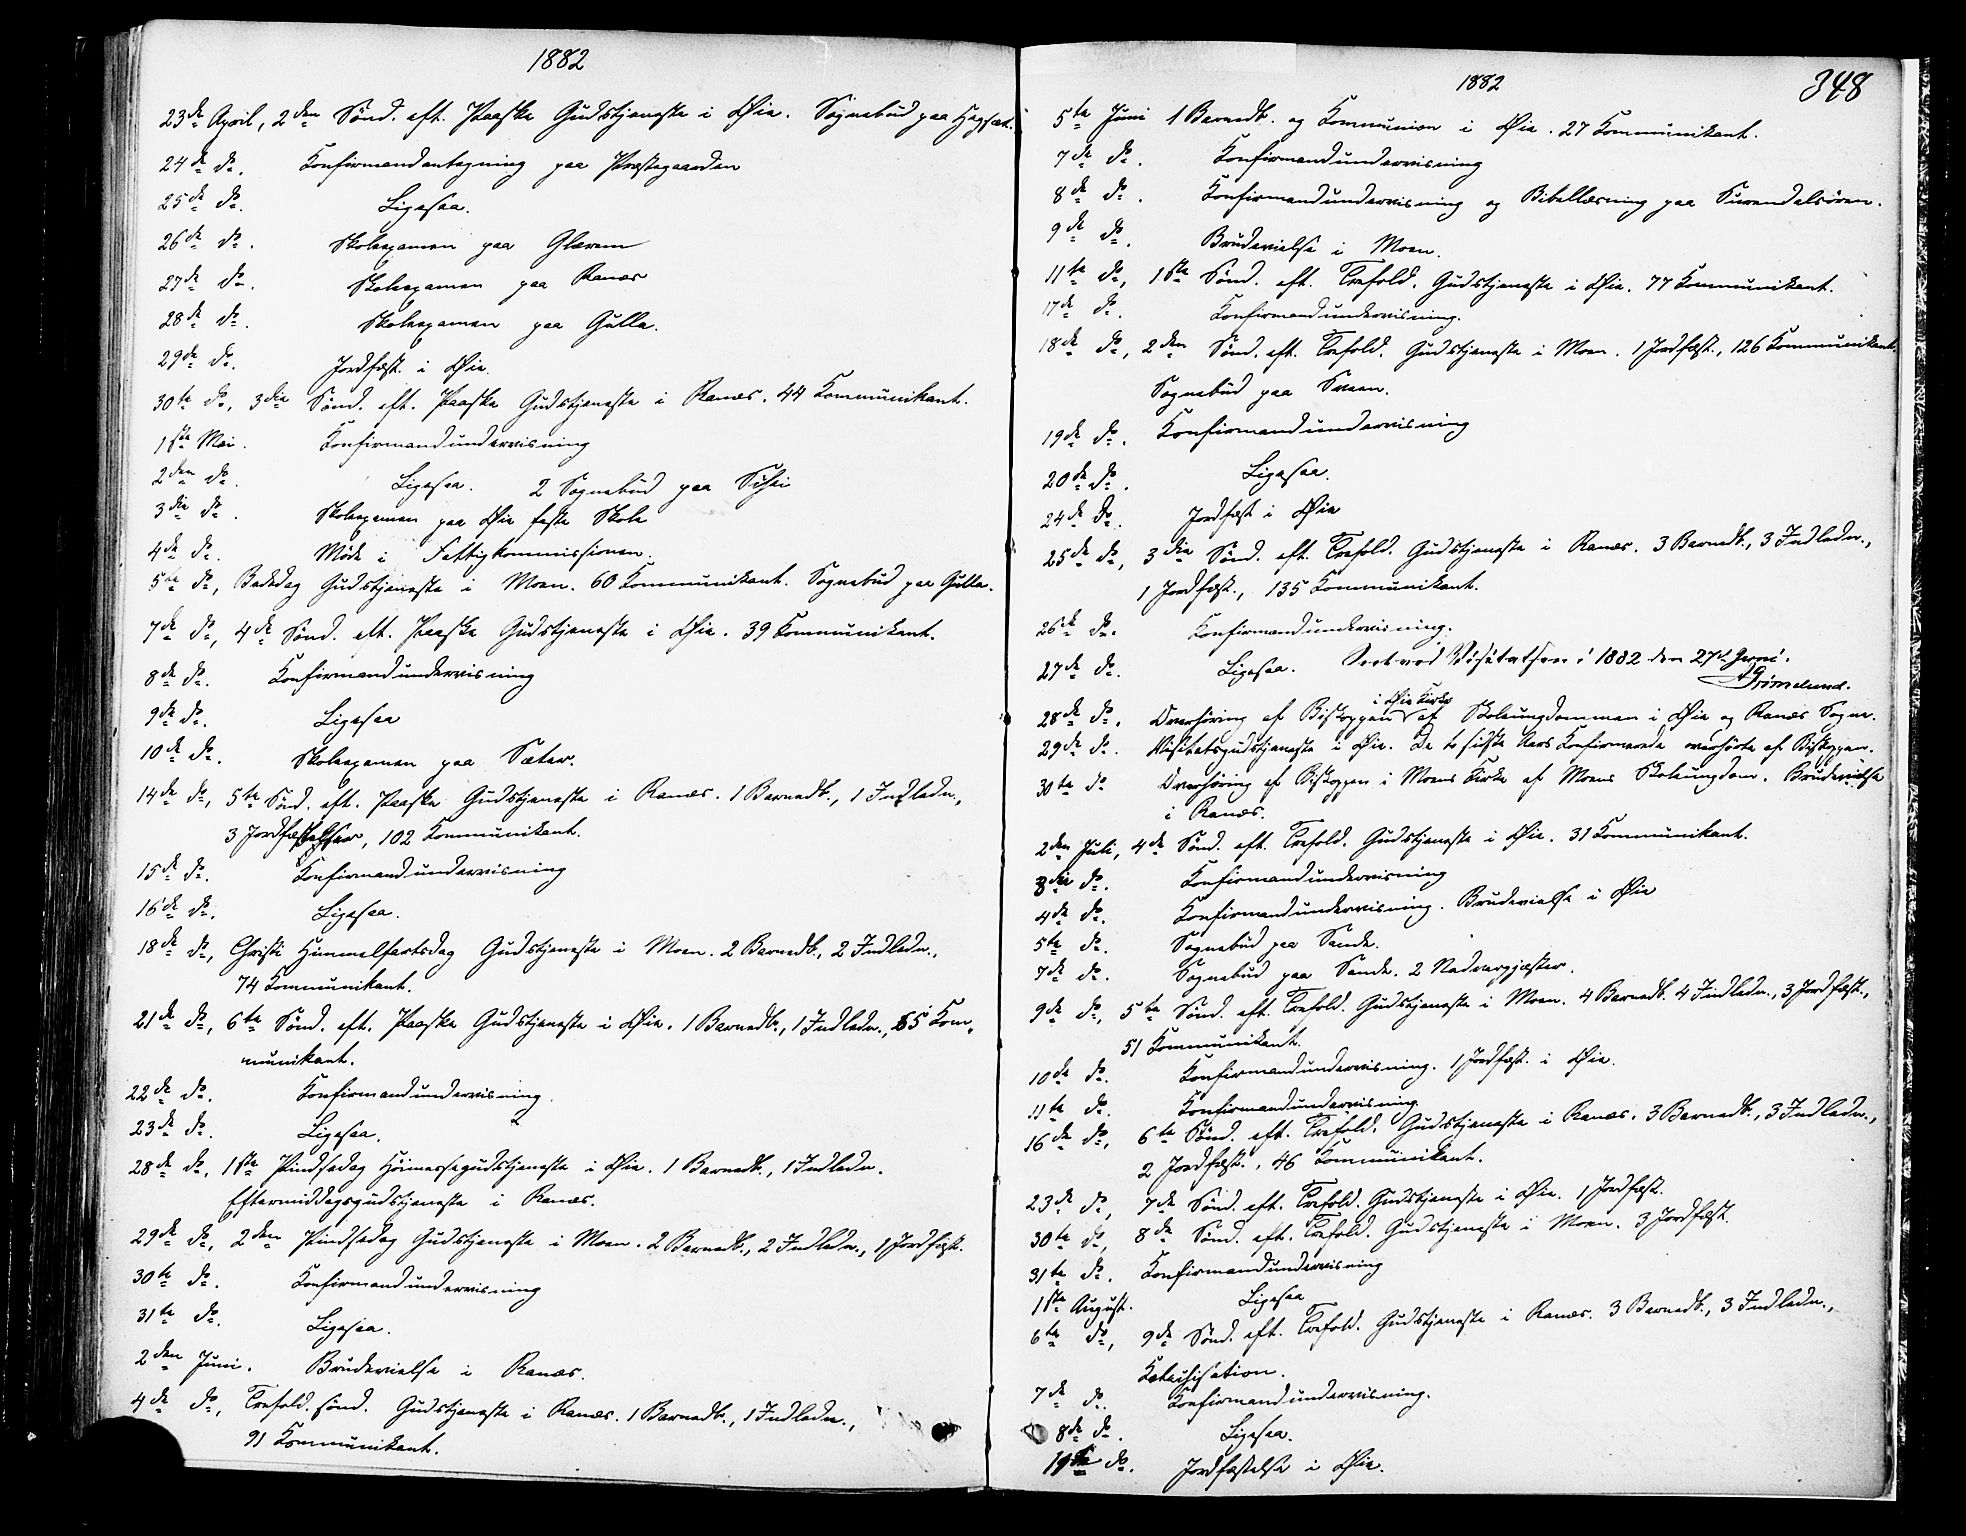 1882
23de April, 2den Sønd. eft. Paaske Gudstjeneste i Øie. Sognebud paa Hegsæt.
24de do. Konfirmandantagning paa Præstegaarden
25de do. Ligesaa.
26de do. Skoleexamen paa Glærem
27de do. Skoleexamen paa Ranæs
28de do. Skoleexamen paa Gulla.
29de do. Jordfæst. i Øie.
30te do, 3die Sønd. eft. Paaske Gudstjeneste i Ranæs. 44 Kommunikant.
1ste Mai. Konfirmandundervisning
2den do. Ligesaa. 2 Sognebud paa
3die do. Skoleexamen paa Øie faste Skole
4de do. Møde i Fattigkommissionen.
5te do, Bededag Gudstjeneste i Moen. 60 Kommunikant. Sognebud paa Gulla.
7de do, 4de Sønd. eft. Paaske Gudstjeneste i Øie. 39 Kommunikant.
8de do. Konfirmandundervisning
9de do. Ligesaa
10de do. Skoleexamen paa Sæter.
14de do, 5te Sønd. eft. Paaske Gudstjeneste i Ranæs. 1 Barnedb., 1 Indledn.,
3 Jordfæstelser, 102 Kommunikant.
15de do. Konfirmandundervisning
16de do. Ligesaa.
18de do, Christi Himmelfartsdag Gudstjeneste i Moen. 2 Barnedb., 2 Indledn.,
74 Kommunikant.
21de do, 6te Sønd. eft. Paaske Gudstjeneste i Øie. 1 Barnedb., 1 Indledn., 65 Kom-
munikant.
22de do. Konfirmandundervisning.
23de do. Ligesaa.
28de do, 1ste Pindsedag Høimessegudstjeneste i Øie. 1 Barnedb., 1 Indledn.
Eftermiddagsgudstjeneste i Ranæs.
29de do, 2den Pindsedag Gudstjeneste i Moen. 2 Barnedb., 2 Indledn., 1 Jordfæst.
30te do. Konfirmandundervisning
31te do. Ligesaa.
2den Juni. Brudevielse i Ranæs.
4de do, Trefold. sønd. Gudstjeneste i Ranæs. 1 Barnedb., 1 Indledn.,
91 Kommunikant.
1882
348
5te Juni 1 Barnedb. og Kommunion i Øie. 27 Kommunikant.
7de do. Konfirmandundervisning
8de do. Konfirmandundervisning og Bibellæsning paa Surendalsøren.
9de do. Brudevielse i Moen.
11te do, 1ste Sønd. eft. Trefold. Gudstjeneste i Øie. 77 Kommunikant.
17de do. Konfirmandundervisning.
18de do, 2den Sønd. eft. Trefold. Gudstjeneste i Moen. 1 Jordfæst., 126 Kommunikant.
Sognebud paa Sveen.
19de do. Konfirmandundervisning
20de do. Ligesaa.
24de do. Jordfæst i Øie
25de do, 3die Sønd. eft. Trefold. Gudstjeneste i Ranæs. 3 Barnedb., 3 Indledn.,
1 Jordfæst., 135 Kommunikant.
26de do. Konfirmandundervisning.
27de do. Ligesaa. Seet ved Visitatsen i 1882 den 27de Juni.
Grimelund.
i Øie Kirke
28de do. Overhøring af Biskoppen af Skoleungdommen i Øie og Ranæs Sogne.
29de do. Visitatsgudstjeneste i Øie. De to sidste Aars Konfirmerede overhørte af Biskoppen.
30te do Overhøring af Biskoppen i Moens Kirke af Moens Skoleungdom. Brudevielse
i Ranæs.
2den Juli, 4de Sønd. eft. Trefold. Gudstjeneste i Øie. 31 Kommunikant.
3die do. Konfirmandundervisning
4de do. Konfirmandundervisning. Brudevielse i Øie
5te do. Sognebud paa Sande.
7de do. Sognebud paa Sande. 2 Nadvergjæster.
9de do, 5te Sønd. eft. Trefold. Gudstjeneste i Moen. 4 Barnedb. 4 Indledn., 3 Jordfæst.,
51 Kommunikant.
10de do. Konfirmandundervisning. 1 Jordfæst. i Øie.
11te do. Konfirmandundervisning.
16de do, 6te Sønd. eft. Trefold. Gudstjeneste i Ranæs. 3 Barnedb., 3 Indledn.,
2 Jordfæst., 46 Kommunikant.
23de do, 7de Sønd. eft. Trefold. Gudstjeneste i Øie. 1 Jordfæst.
30te do, 8de Sønd. eft. Trefold. Gudstjeneste i Moen. 3 Jordfæst.
31te do. Konfirmandundervisning
1ste August. Ligesaa
6te do, 9de Sønd. eft. Trefold. Gudstjeneste i Ranæs. 3 Barnedb., 3 Indledn.,
Katechisation.
7de do. Konfirmandundervisning.
8de do. Ligesaa.
11te do. Jordfæstelse i Øie.